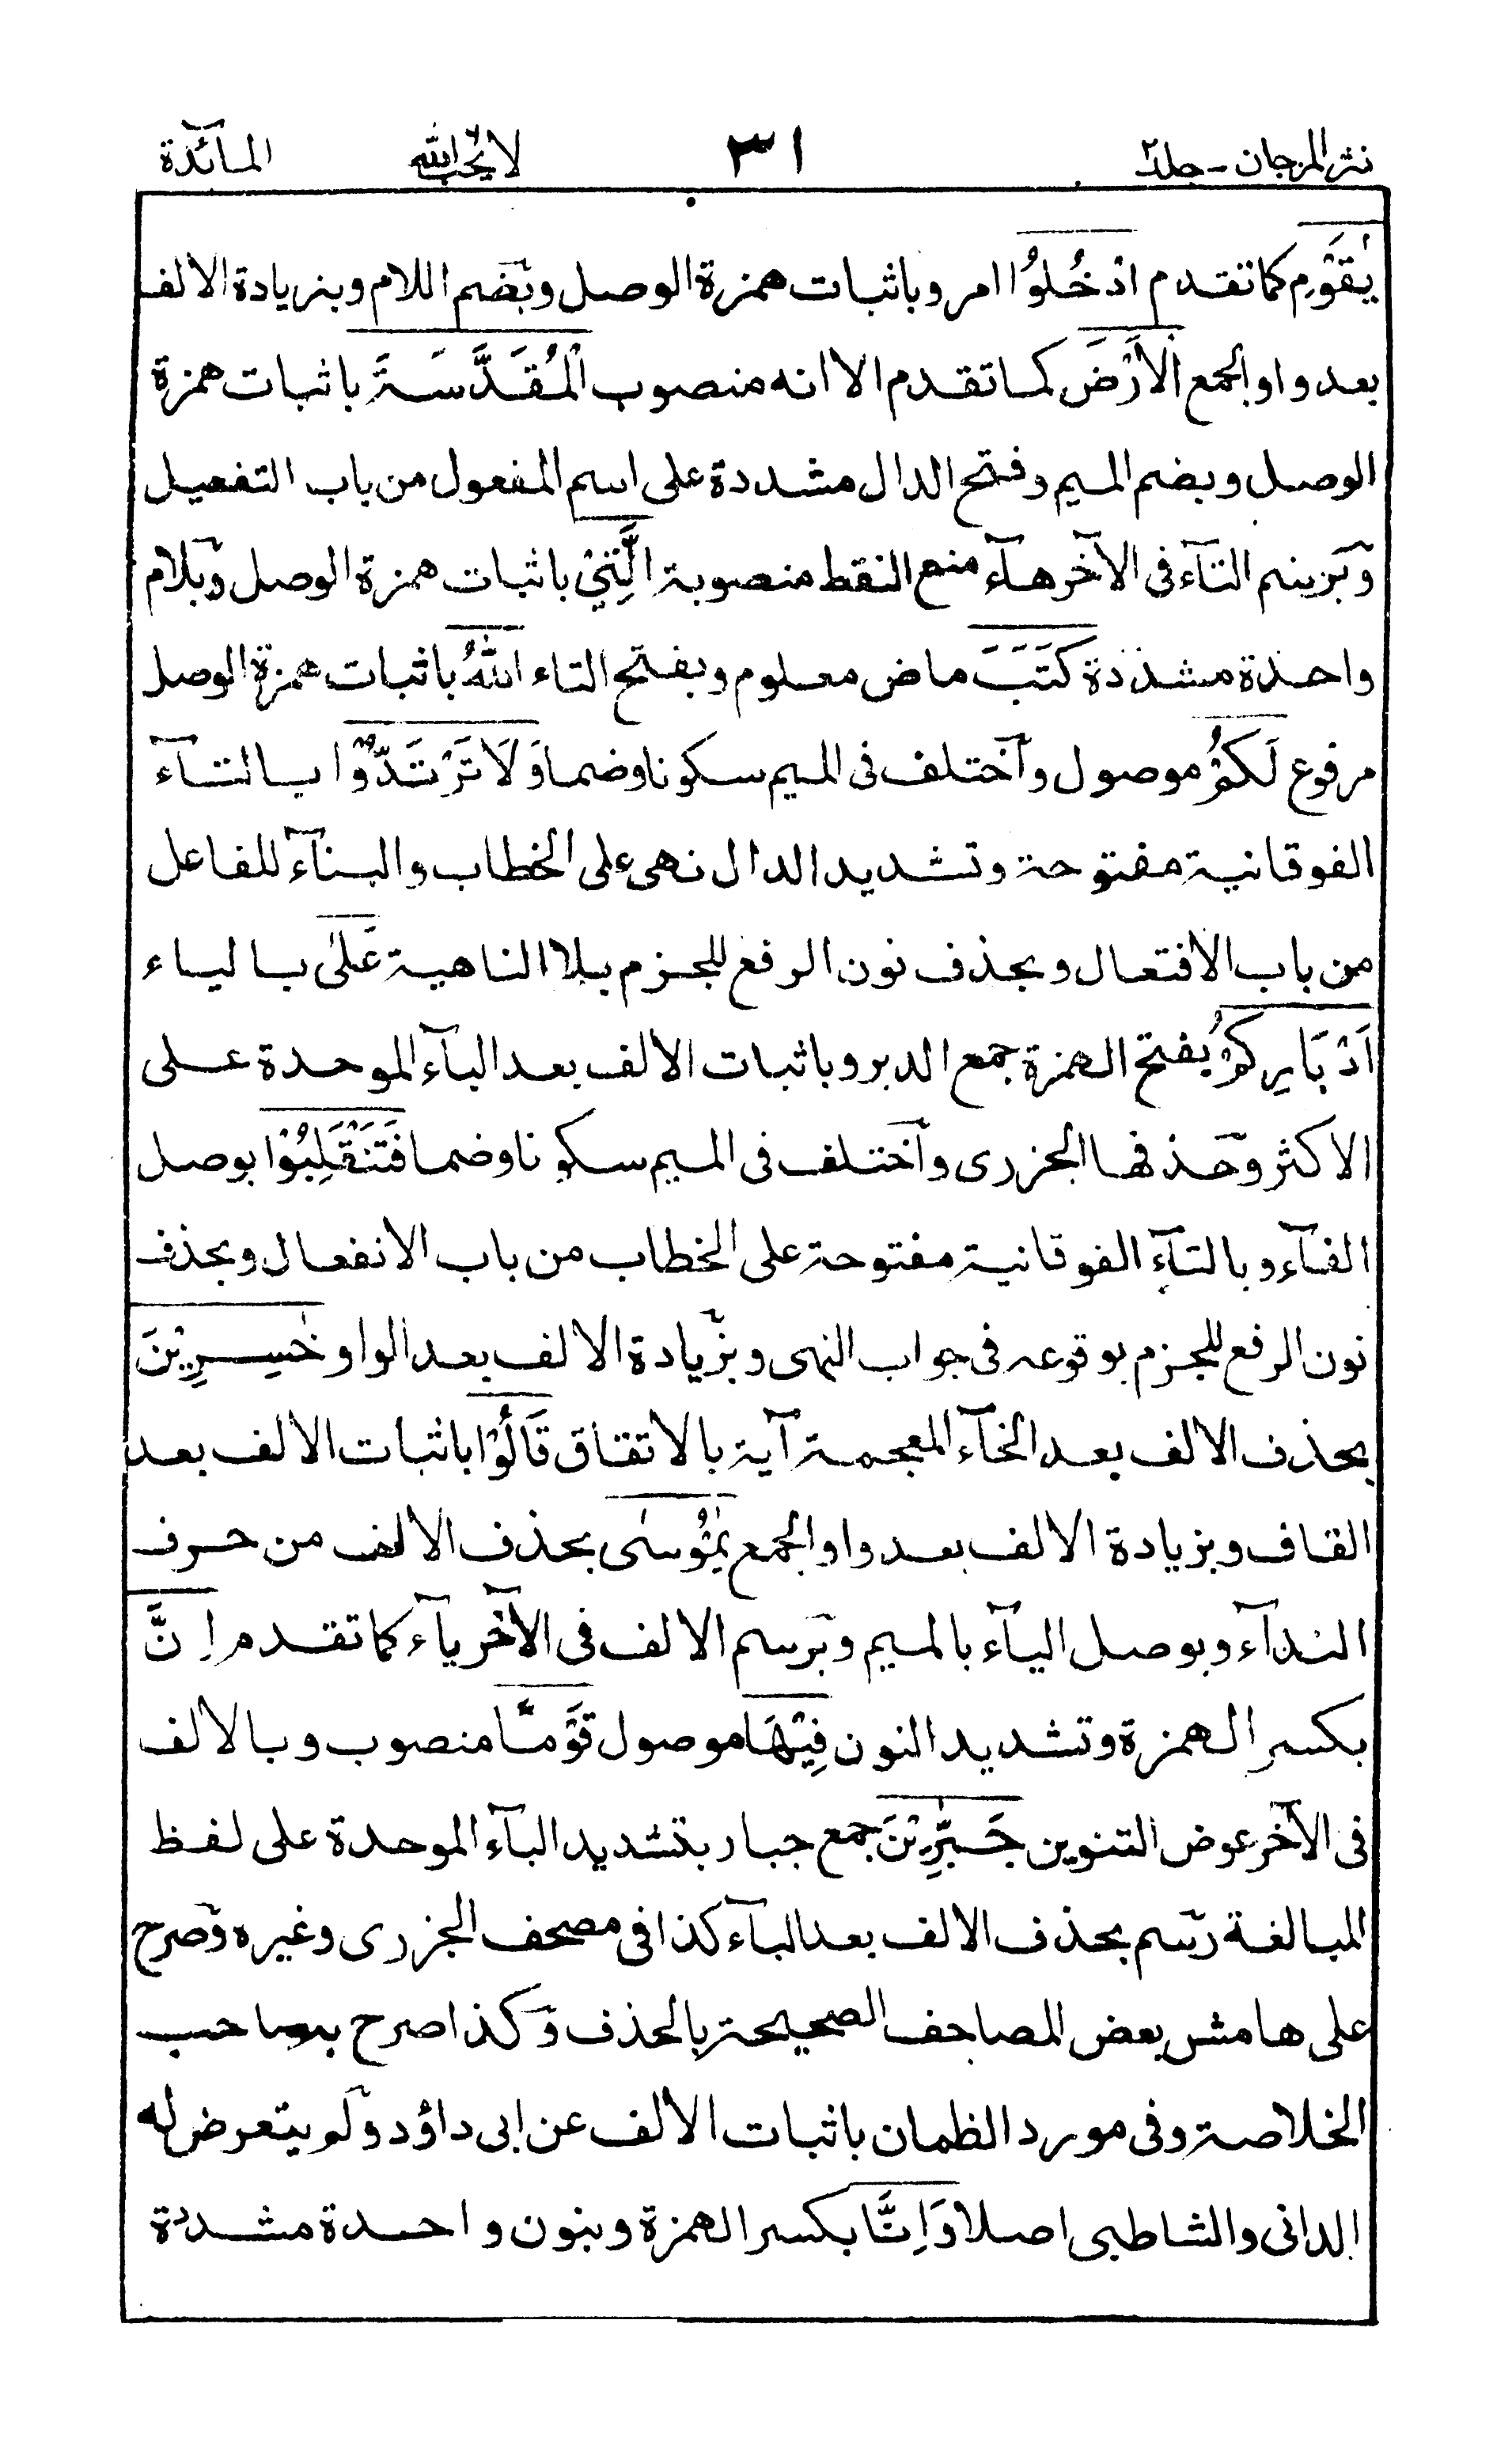 نثر المرجان - جلد٢ ٣١ لا يحب الله المآئدة
يٰقَوْمِ كما تقدم ادْخُلُوْا امر وباثبات همزة الوصل وبضم اللام وبزيادة الالف
بعد واو الجمع الْاَرْضَ كما تقدم الا انه منصوب الْمُقَدَّسَةَ باثبات همزة
الوصل وبضم الميم وفتح الدال مشددة على اسم المفعول من باب التفعيل
وبرسم التآء فى الآخر هآء منع النقط منصوبة الَّتِيْ باثبات همزة الوصل وبلام
واحدة مشددة كَتَبَ ماض معلوم وبفتح التاء اللّٰهُ باثبات همزة الوصل
مرفوع لَكُمْ موصول واختلف فى الميم سكونا وضما وَلَا تَرْتَدُّوْا بالتآء
الفوقانية مفتوحة وتشديد الدال نهى على الخطاب والبنآء للفاعل
من باب الافتعال وبحذف نون الرفع للجزم بلا الناهية عَلٰى بالياء
اَدْبَارِكُمْ بفتح الهمزة جمع الدبر وباثبات الالف بعد البآء الموحدة على
الاكثر وحذفها الجزرى واختلف فى الميم سكونا وضما فَتَنْقَلِبُوْا بوصل
الفآء وبالتآء الفوقانية مفتوحة على الخطاب من باب الانفعال وبحذف
نون الرفع للجزم بوقوعه فى جواب النهى وبزيادة الالف بعد الواو خٰسِرِيْنَ
بحذف الالف بعد الخآء المعجمة آية بالاتفاق قَالُوْا باثبات الالف بعد
القاف وبزيادة الالف بعد واو الجمع يٰمُوْسٰى بحذف الالف من حرف
الندآء وبوصل اليآء بالميم وبرسم الالف فى الآخر يآء كما تقدم اِنَّ
بكسر الهمزة وتشديد النون فِيْهَا موصول قَوْمًا منصوب وبالالف
فى الآخر عوض التنوين جَبّٰرِيْنَ جمع جبار بتشديد البآء الموحدة على لفظ
المبالغة رسم بحذف الالف بعد البآء كذا فى مصحف الجزرى وغيره وصرح
على هامش بعض المصاحف الصحيحة بالحذف وكذا صرح به صاحب
الخلاصة وفى مورد الظمان باثبات الالف عن ابى داؤد ولم يتعرض له
الدانى والشاطبى اصلا وَاِنَّا بكسر الهمزة وبنون واحدة مشددة